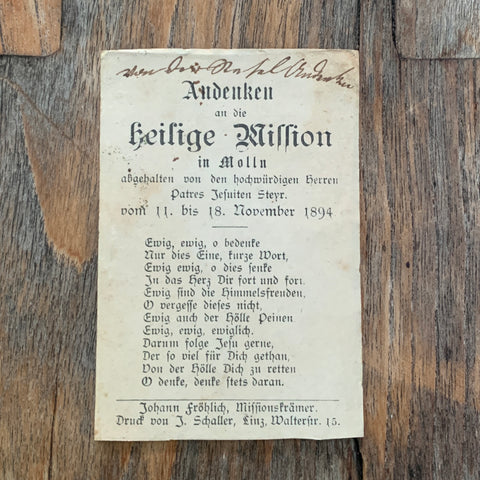 von der Resel Andenken
Andenken
an die
heilige Mission
in Molln
abgehalten von den hochwürdigen Herren
Patres Jesuiten Steyr.
vom 11. bis 18. November 1894
Ewig, ewig, o bedenke
Nur dies Eine, kurze Wort,
Ewig ewig, o dies senke
In das Herz Dir fort und fort.
Ewig sind die Himmelsfreuden,
O vergesse dieses nicht,
Ewig auch der Hölle Peinen
Ewig, ewig, ewiglich.
Darum folge Jesu gerne,
Der so viel für Dich gethan,
Von der Hölle Dich zu retten
O denke, denke stets daran.
Johann Fröhlich, Missionskrämer.
Druck von J. Schaller, Linz, Walterstr. 15.